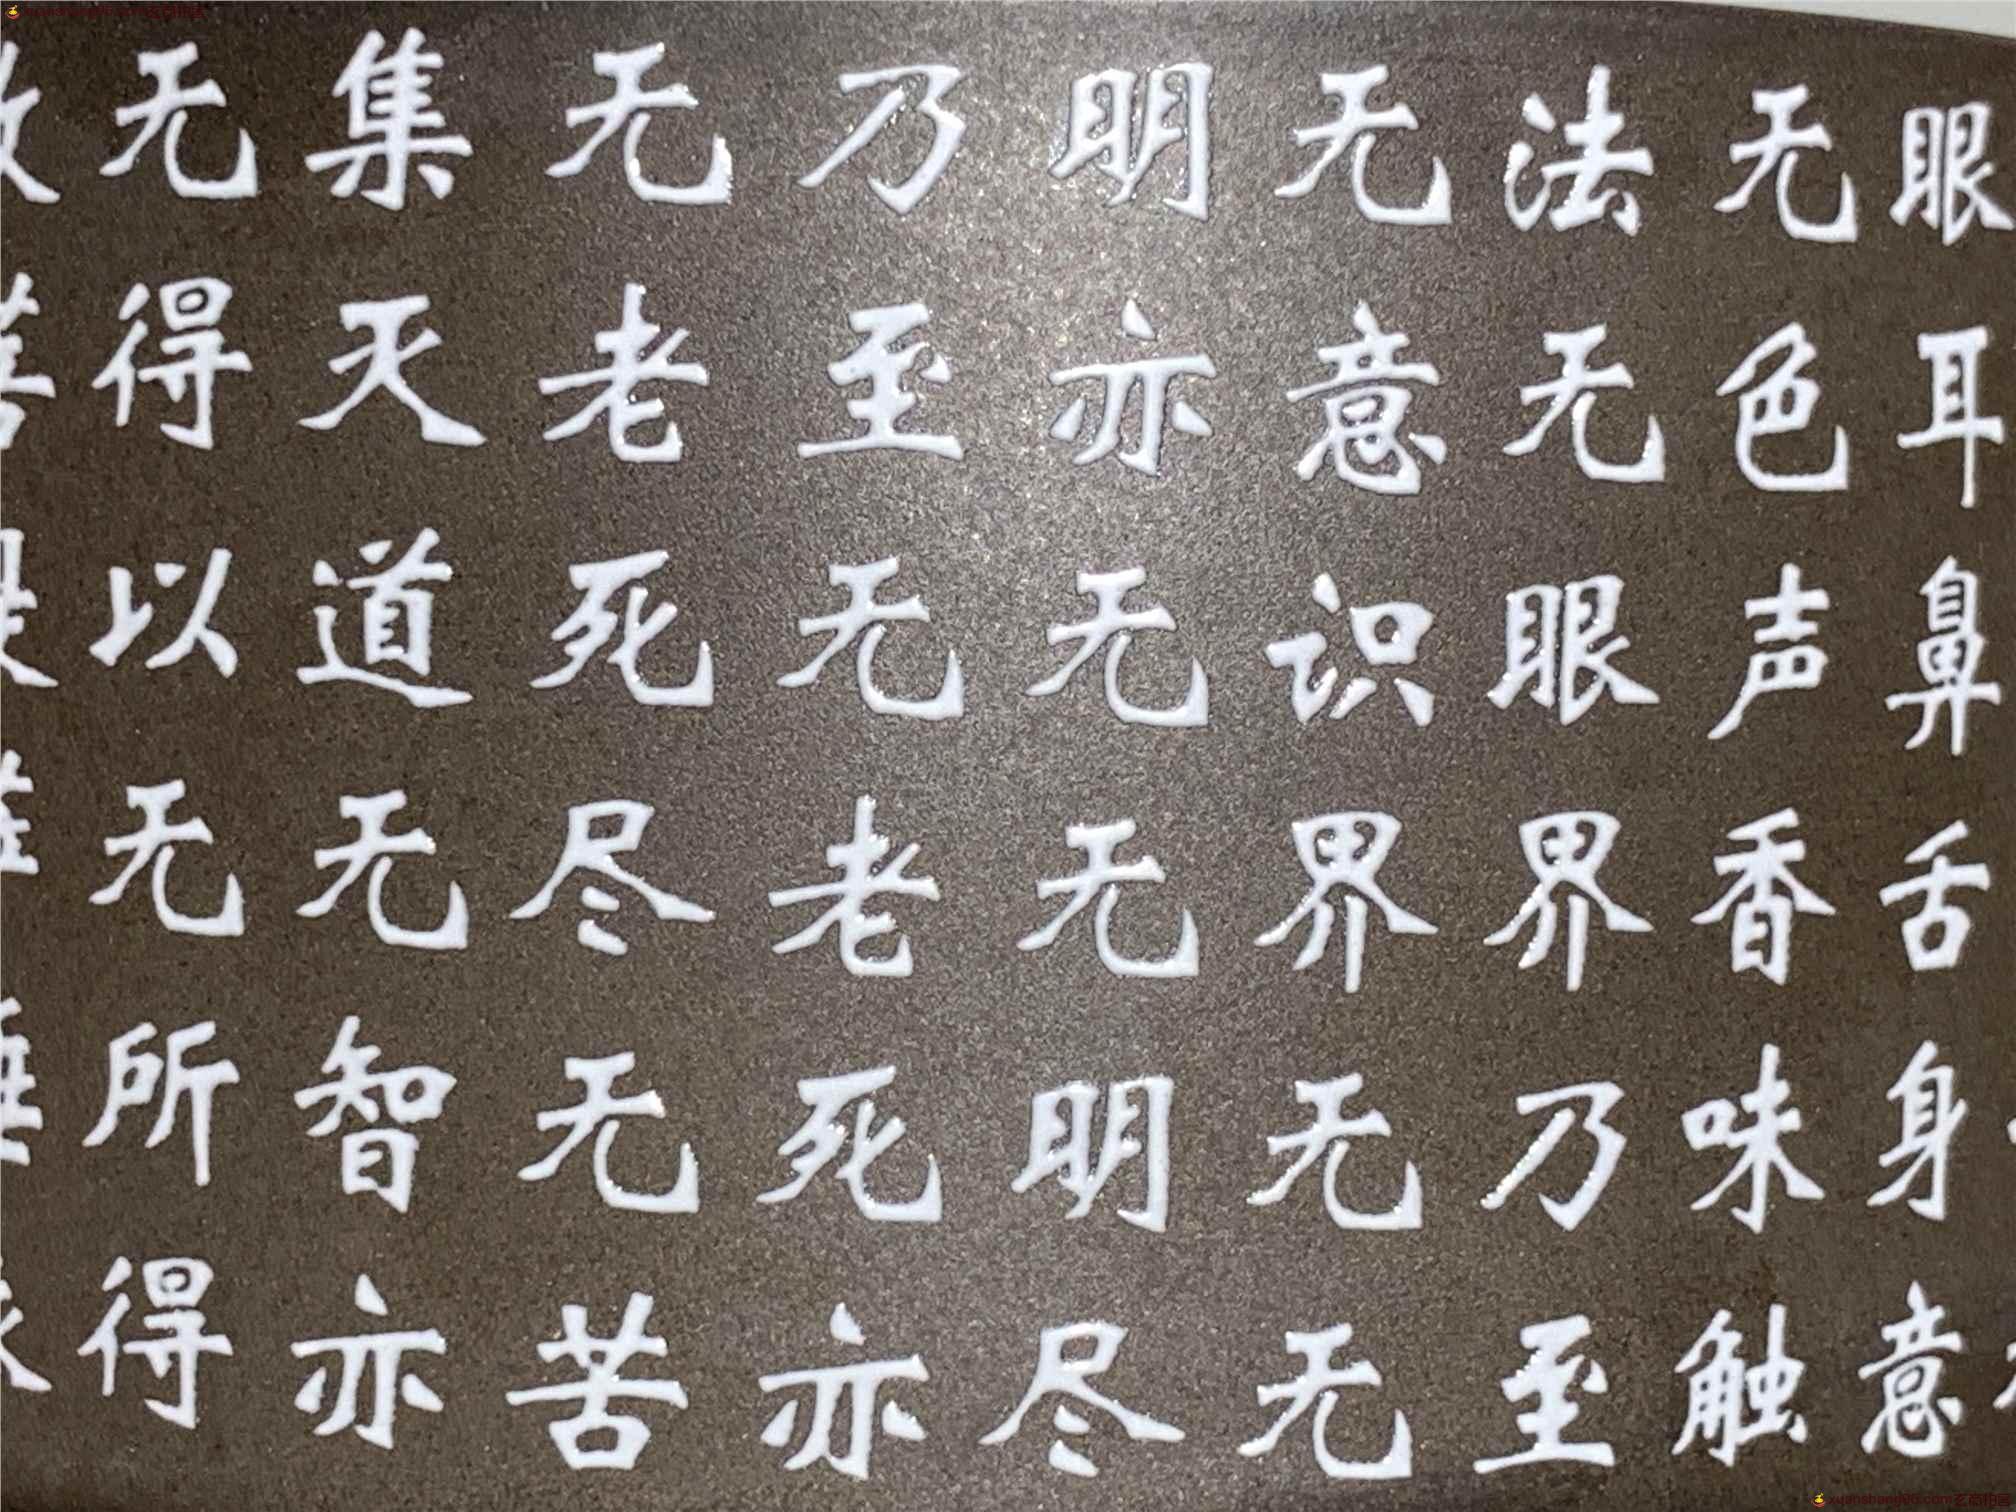 眼耳鼻舌身意
无色声香味触
法无眼界乃至
无意识界无无
明亦无无明尽
乃至无老死亦
无老死尽无苦
集灭道无智亦
无得以无所得